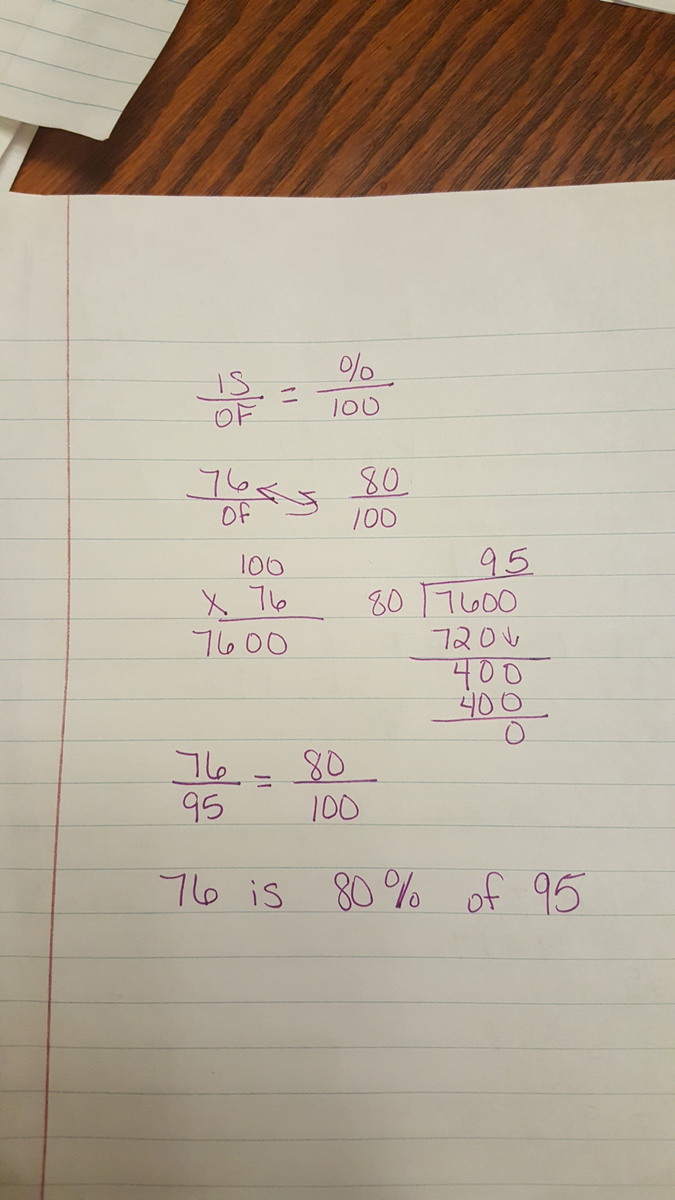 IS/OF = %/100
76/Of 80/100
100
x 76
7600
95
80 7600
720↓
400
400
0
76/95 = 80/100
76 is 80% of 95